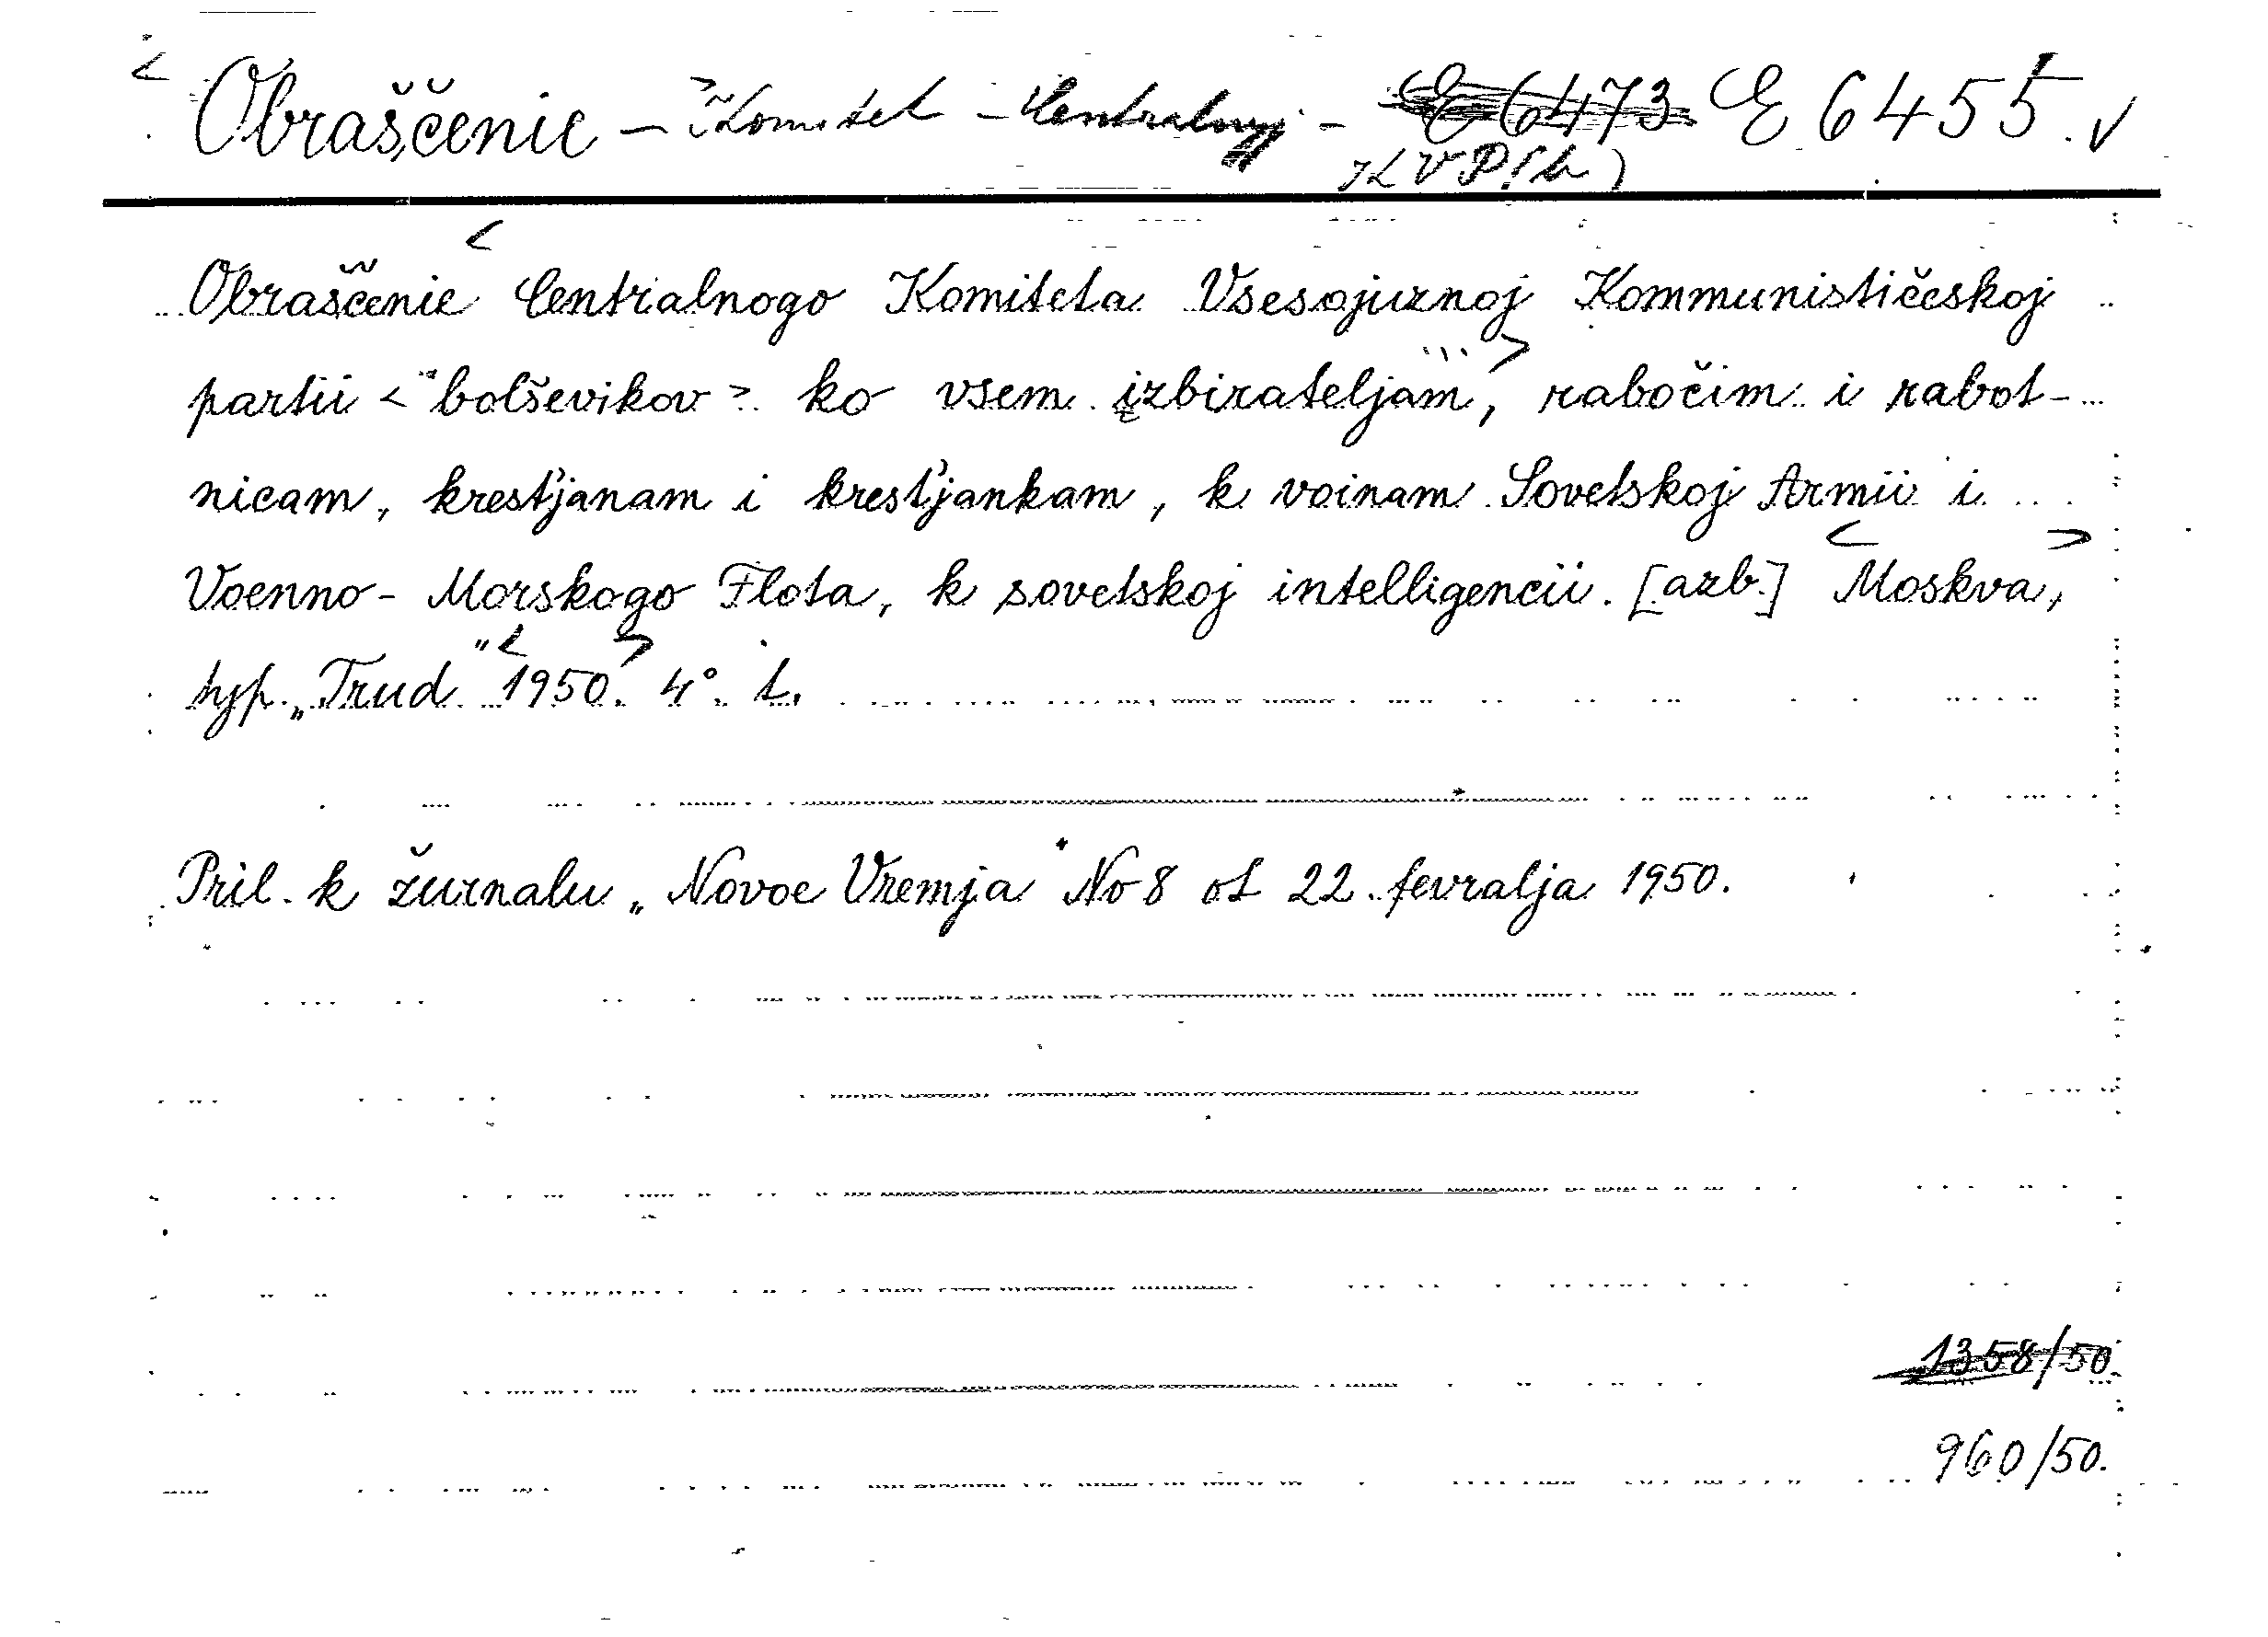 < Obraščenie - > Komitet - Centralnyj - E 6473 E 6455. v
KVP(b)
Obraščenie < Centralnogo Komiteta Vsesojuznoj Kommunističeskoj
partii < bolševikov > ko vsem izbirateljam ... >, rabočim i rabot-
nicam, krest'janam i krest'jankam, k voinam Sovetskoj Armii i
Voenno-Morskogo Flota, k sovetskoj intelligencii. [azb.] < Moskva, >
typ. „Trud" < 1950. > 4°. t.
Pril. k žurnalu „Novoe Vremja" No 8 ot 22. fevralja 1950.
1358/50.
960/50.